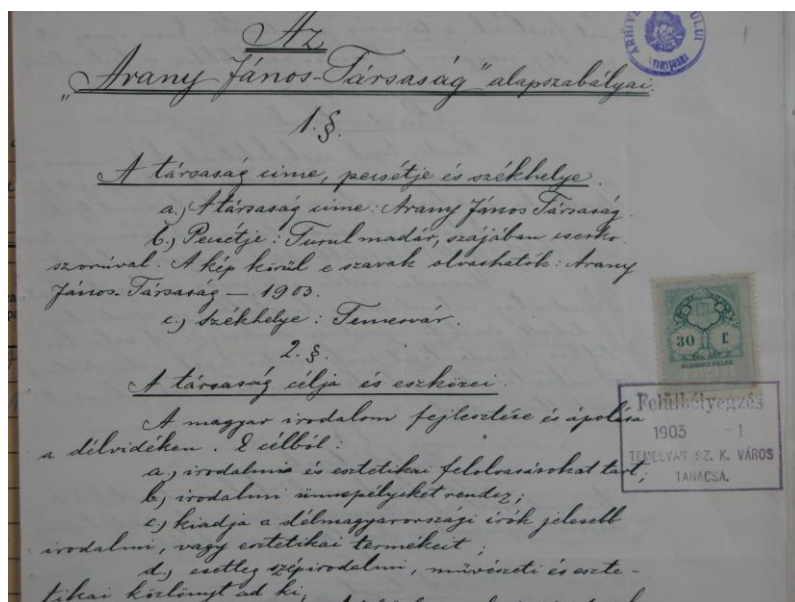 Az
„Arany János-Társaság" alapszabályai.
1. §.
A társaság címe, pecsétje és székhelye.
a.) A társaság címe: Arany János Társaság.
b.) Pecsétje: Turul madár, szájában cserko-
szorúval. A kép körül e szavak olvashatók: Arany
János-Társaság — 1903.
c.) Székhelye: Temesvár.
2. §.
A társaság célja és eszközei.
A magyar irodalom fejlesztése és ápolása
a délvidéken. E célból:
a.) irodalmi és esztetikai felolvasásokat tart;
b.) irodalmi ünnepélyeket rendez;
c.) kiadja a délmagyarországi írók jelesebb
irodalmi, vagy esztetikai termékeit;
d.) esetleg szépirodalmi, művészeti és eszte-
tikai közlönyt ad ki;
30 f.
Felülbélyegzés
1903 -1
TEMESVÁR SZ. K. VÁROS
TANÁCSA.